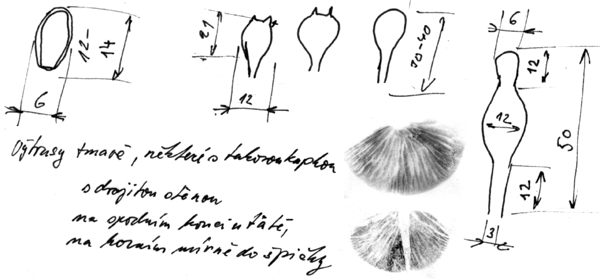 12–14
6
21
12
30–40
6
12
12
50
12
3
Výtrusy tmavé, některé s takovou kapkou
s dvojitou stěnou
na spodním konci uťaté,
na horním mírně do špičky